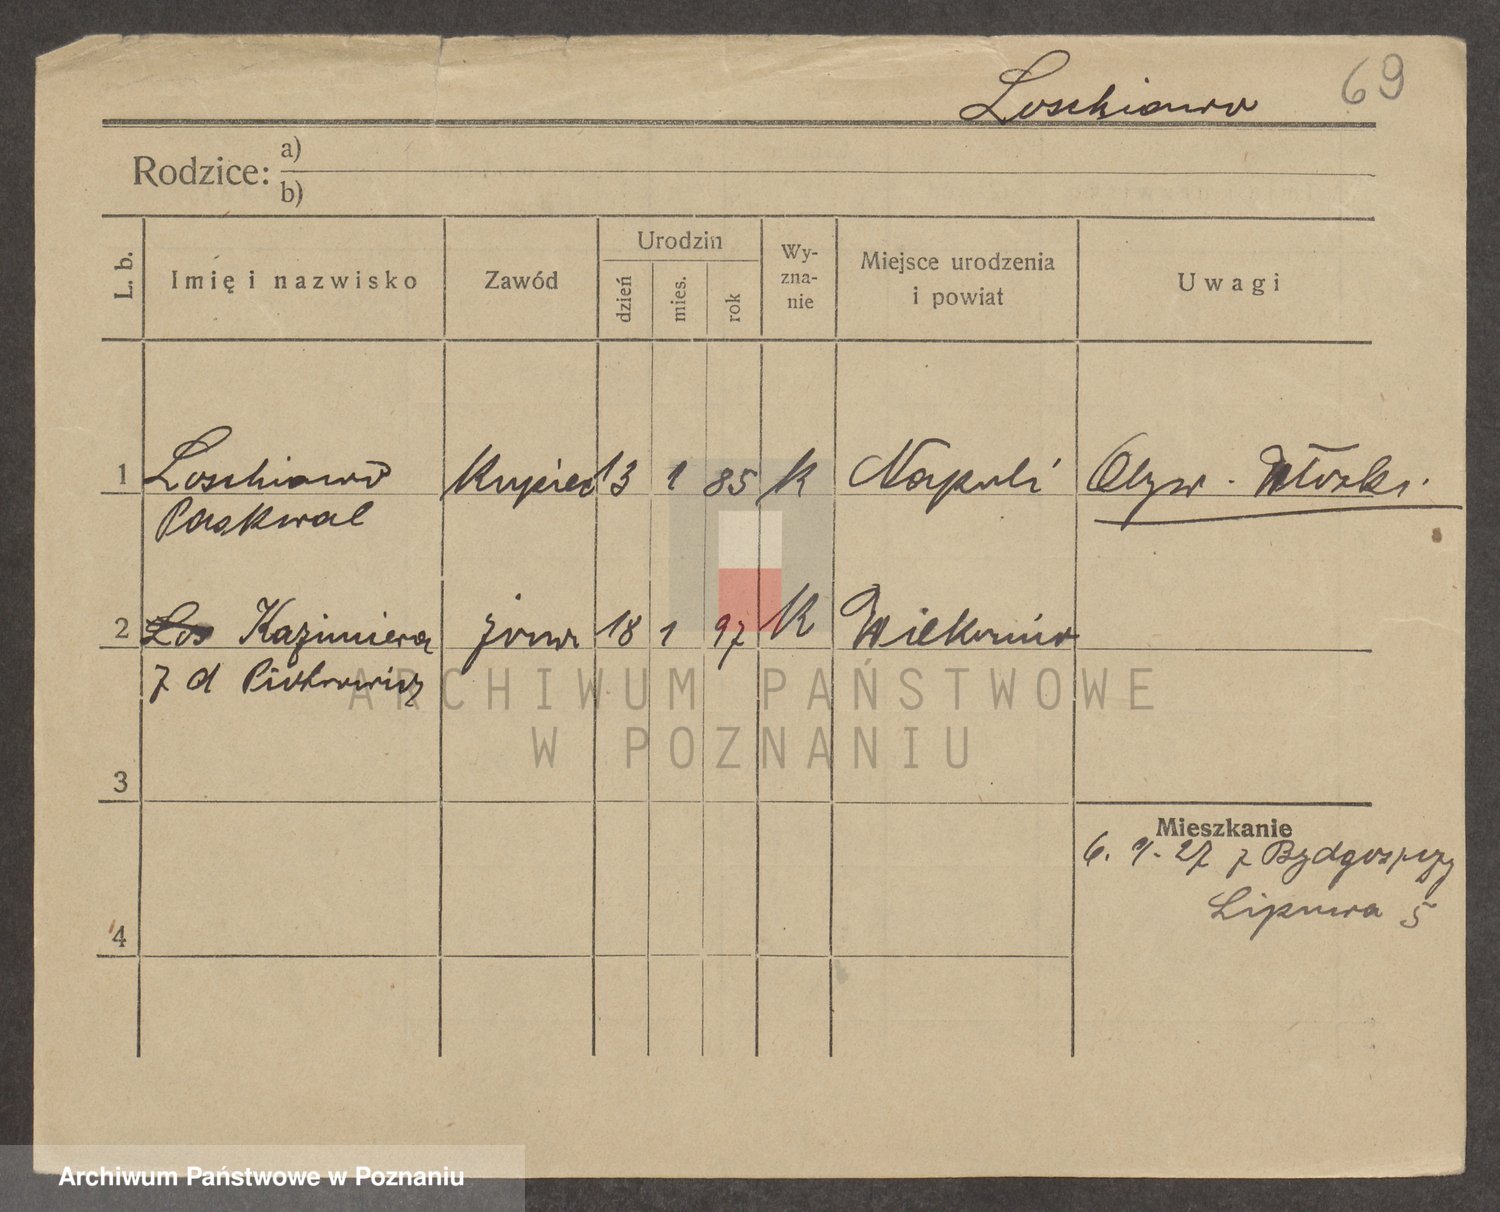 Loschiavo
69
Rodzice: a)
b)
L. b.
Imię i nazwisko
Zawód
Urodzin
dzień
mies.
rok
Wy-
zna-
nie
Miejsce urodzenia
i powiat
Uwagi
1 Loschiavo Kupiec 13 1 85 K Napoli Obyw. Włoski.
Paskwal
2 Los Kazimiera żona 18 1 97 K
z d Piotrowicz
ARCHIWUM PAŃSTWOWE
W POZNANIU
3
Mieszkanie
6. 9. 27 z Bydgoszczy
Lipowa 5
4
Archiwum Państwowe w Poznaniu